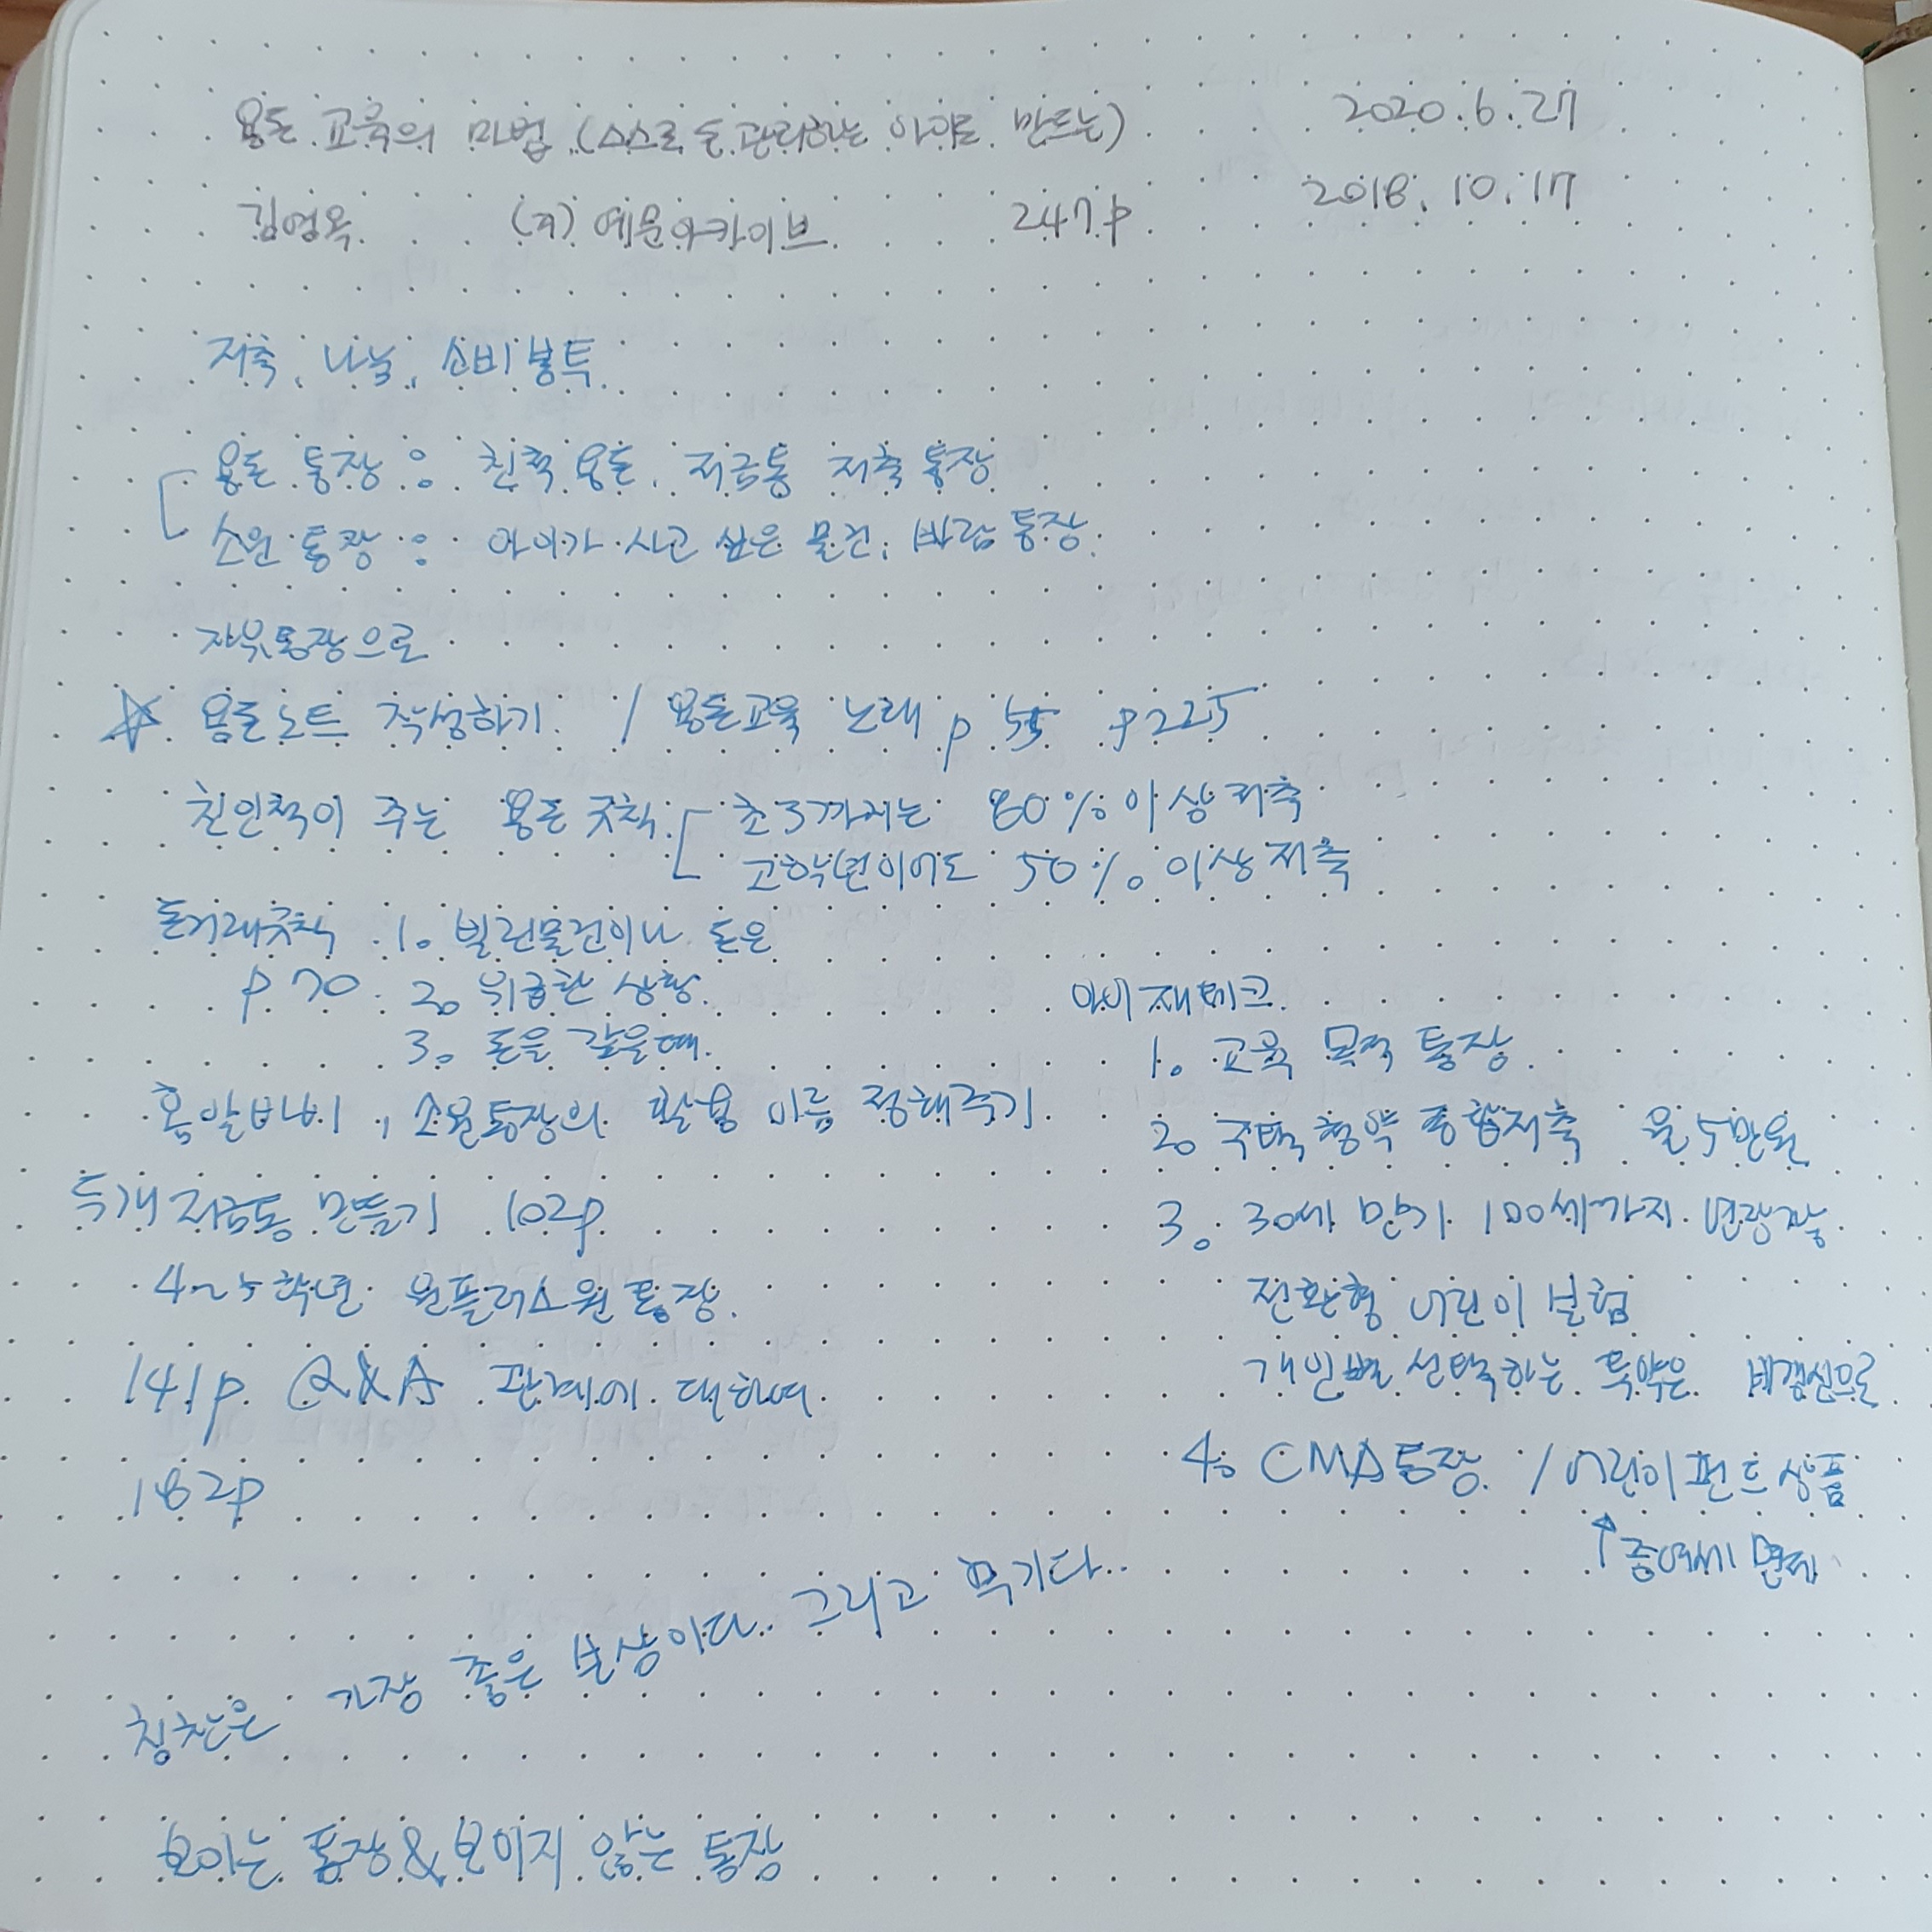 용돈 교육의 마법 (스스로 돈 관리하는 아이로 만드는) 2020.6.27
김영옥 (주) 예문아카이브 247p 2018.10.17
저축, 나눔, 소비봉투
용돈 통장 : 친척 용돈, 저금통 저축 통장
소원 통장 : 아이가 사고 싶은 물건, 바람 통장
자유통장으로
☆ 용돈노트 작성하기 / 용돈교육 노래 p 55 p225
친인척이 주는 용돈 규칙 초3까지는 80% 이상 저축
고학년이어도 50% 이상 저축
돈거래규칙 1. 빌린물건이나 돈은
p70 2. 위급한 상황
3. 돈을 갚을때
홈알바비, 소원통장의 활용 이름 정해주기
두개 저금통 만들기 102p
4~5학년 원플러스원 통장
141p Q&A 관계에 대하여
182p
아이 재테크
1. 교육 목적 통장
2. 주택 청약 종합저축 월 5만원
3. 30세 만기 100세까지 연장가능
전환형 어린이 보험
개인별 선택하는 특약은 비갱신으로
4. CMA통장 / 어린이펀드상품
↑증여세 면제
칭찬은 가장 좋은 보상이다.. 그리고 무기다..
보이는 통장 & 보이지 않는 통장